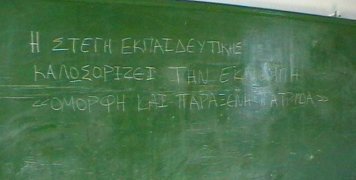 Η ΣΤΕΓΗ ΕΚΠΑΙΔΕΥΤΙΚΗΣ
ΚΑΛΟΣΟΡΙΖΕΙ ΤΗΝ ΕΚΠΟΜΠΗ
«ΟΜΟΡΦΗ ΚΑΙ ΠΑΡΑΞΕΝΗ ΠΑΤΡΙΔΑ»